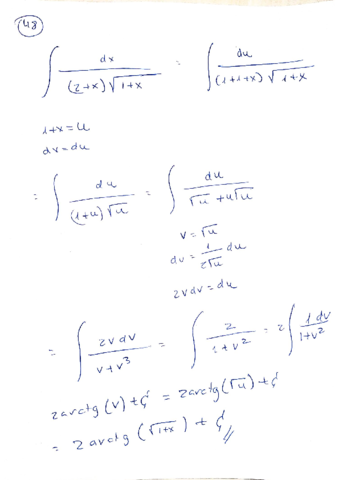 48
∫ dx / ((2+x)√(1+x)) = ∫ du / ((1+1+x)√(1+x))
1+x = u
dx = du
= ∫ du / ((1+u)√u) = ∫ du / (√u + u√u)
v = √u
dv = 1/(2√u) du
2v dv = du
= ∫ 2v dv / (v+v³) = ∫ 2 / (1+v²) = 2 ∫ 1 dv / (1+v²)
2 arctg (v) + C = 2 arctg (√u) + C
= 2 arctg (√(1+x)) + C //